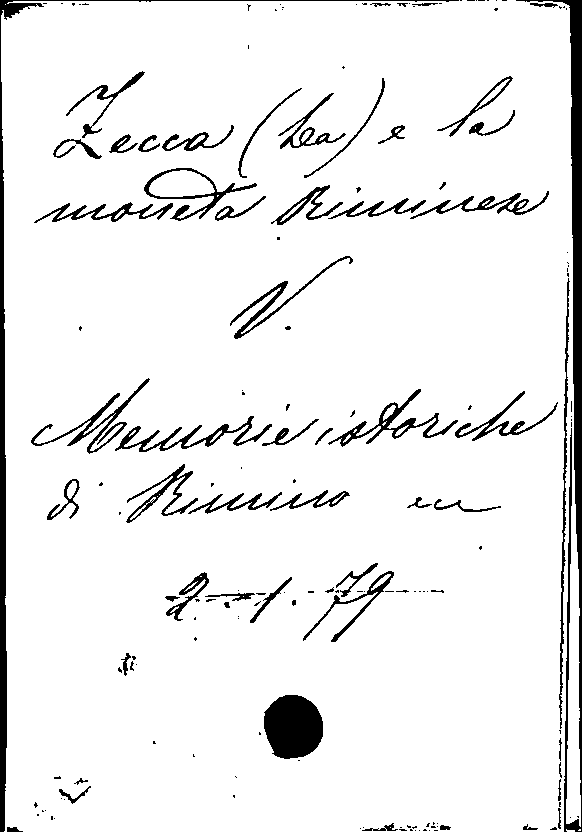 Zecca (La) e la
moneta Riminese
V.
Memorie istoriche
di Rimino
2.1.79